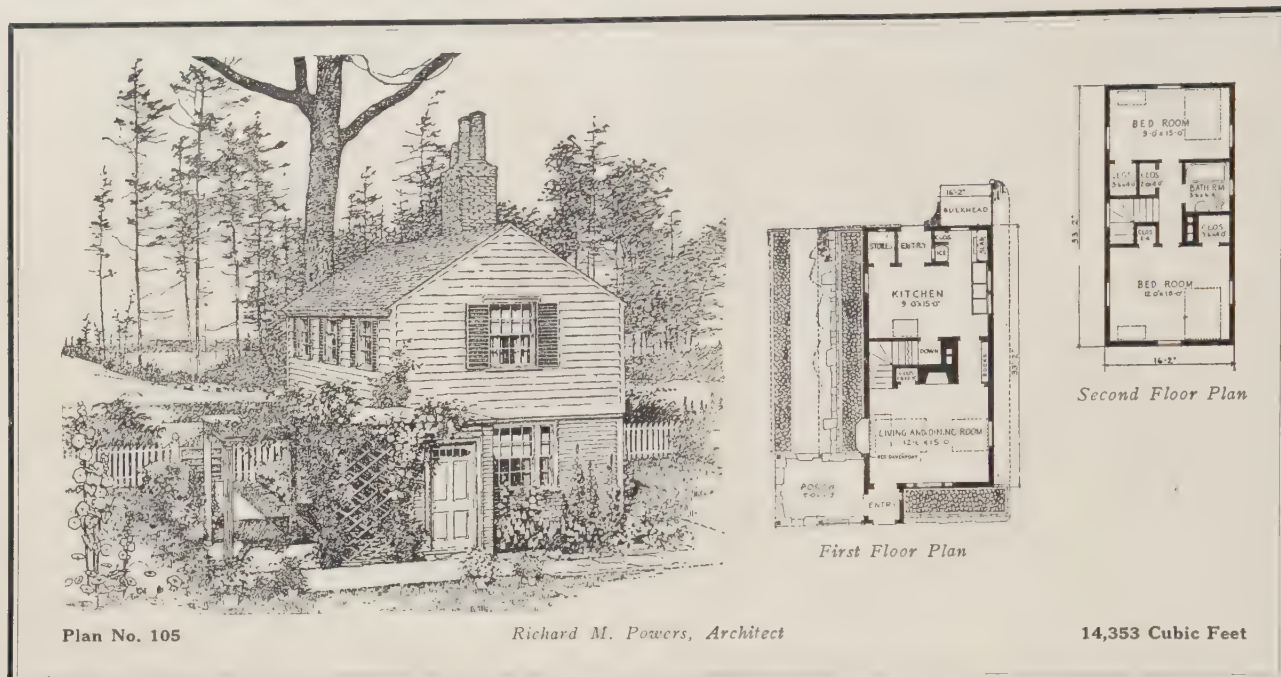 16'-2"
BULKHEAD
STOR.
ENTRY
CLOS.
ICE
KITCHEN
9'-0"x15'-0"
DOWN
CLOS.
LIVING AND DINING ROOM
BED DAVENPORT
PORCH
ENTRY
33'-2"
First Floor Plan
BED ROOM
9'-0"x15'-0"
CLOS.
CLOS.
BATH RM.
CLOS.
CLOS.
BED ROOM
33'-2"
16'-2"
Second Floor Plan
Plan No. 105
Richard M. Powers, Architect
14,353 Cubic Feet